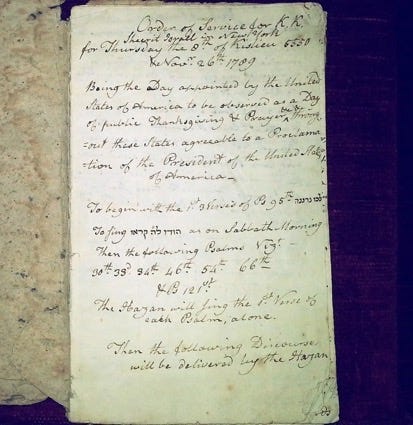 Order of Service for K. K.
Shearit Israel in New York
for Thursday the 8th of Kislieu 5550
& Novr. 26th 1789
Being the Day appointed by the United
States of America to be observed as a Day
of public Thanksgiving & Prayer &c &c Throug-
-out these States agreeable to a Proclama
-tion of the President of the United States
of America—
To begin with the 1st 3 Verses of Ps 95th לכו נרננה
To Sing הודו לה קראו as on Sabbath Morning
Then the following Psalms Vizt.
30th 33d 34th 46th 54th 66th
& Ps 121st
The Hazan will sing the 1st Verse of
each Psalm, alone.
Then the following Discourse
will be delivered by the Hazan